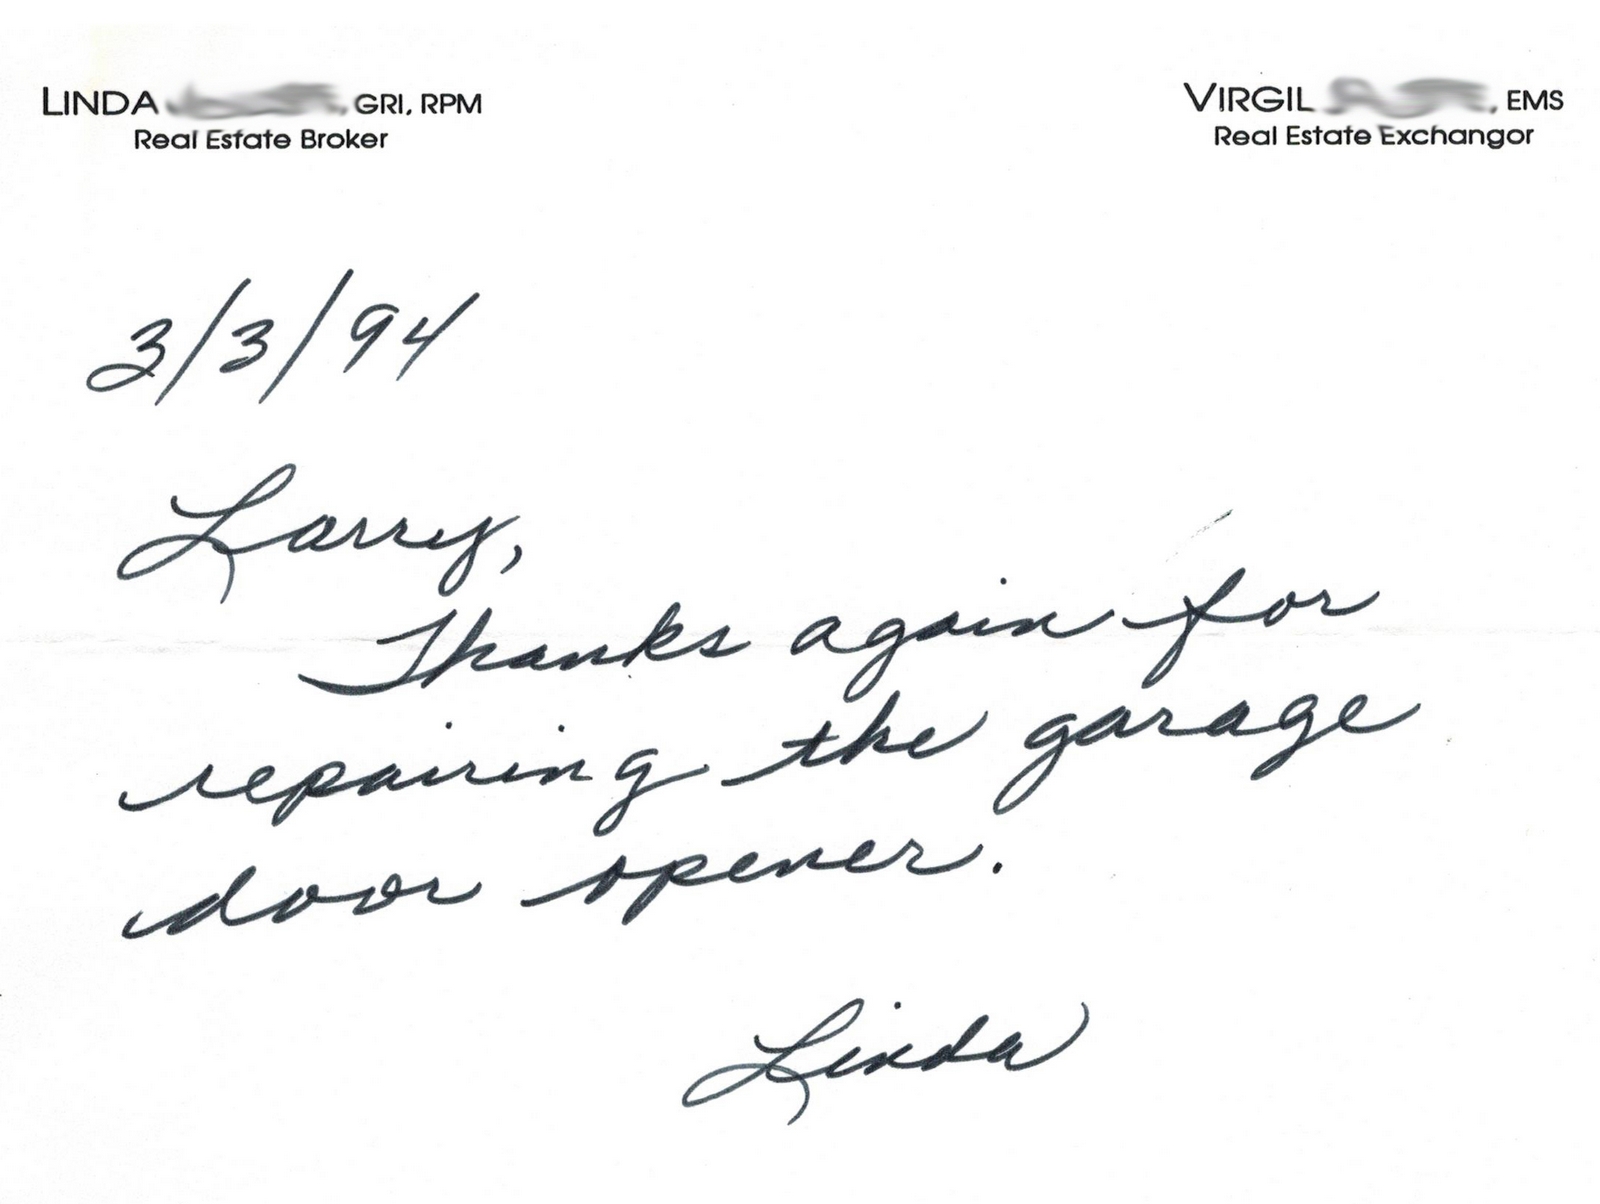 LINDA , GRI, RPM
Real Estate Broker
VIRGIL , EMS
Real Estate Exchangor
3/3/94
Larry,
Thanks again for
repairing the garage
door opener.
Linda